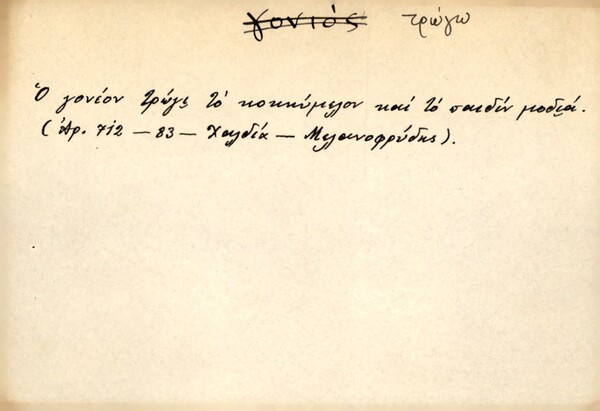 γονιός τρώγω
Ὁ γονέον τρώγ̌ε τὸ κοκκύμελον καὶ τὸ παιδὶν μοδιᾷ.
(Ἀρ. 712 – 83 – Χαλδία – Μελανοφρύδης).